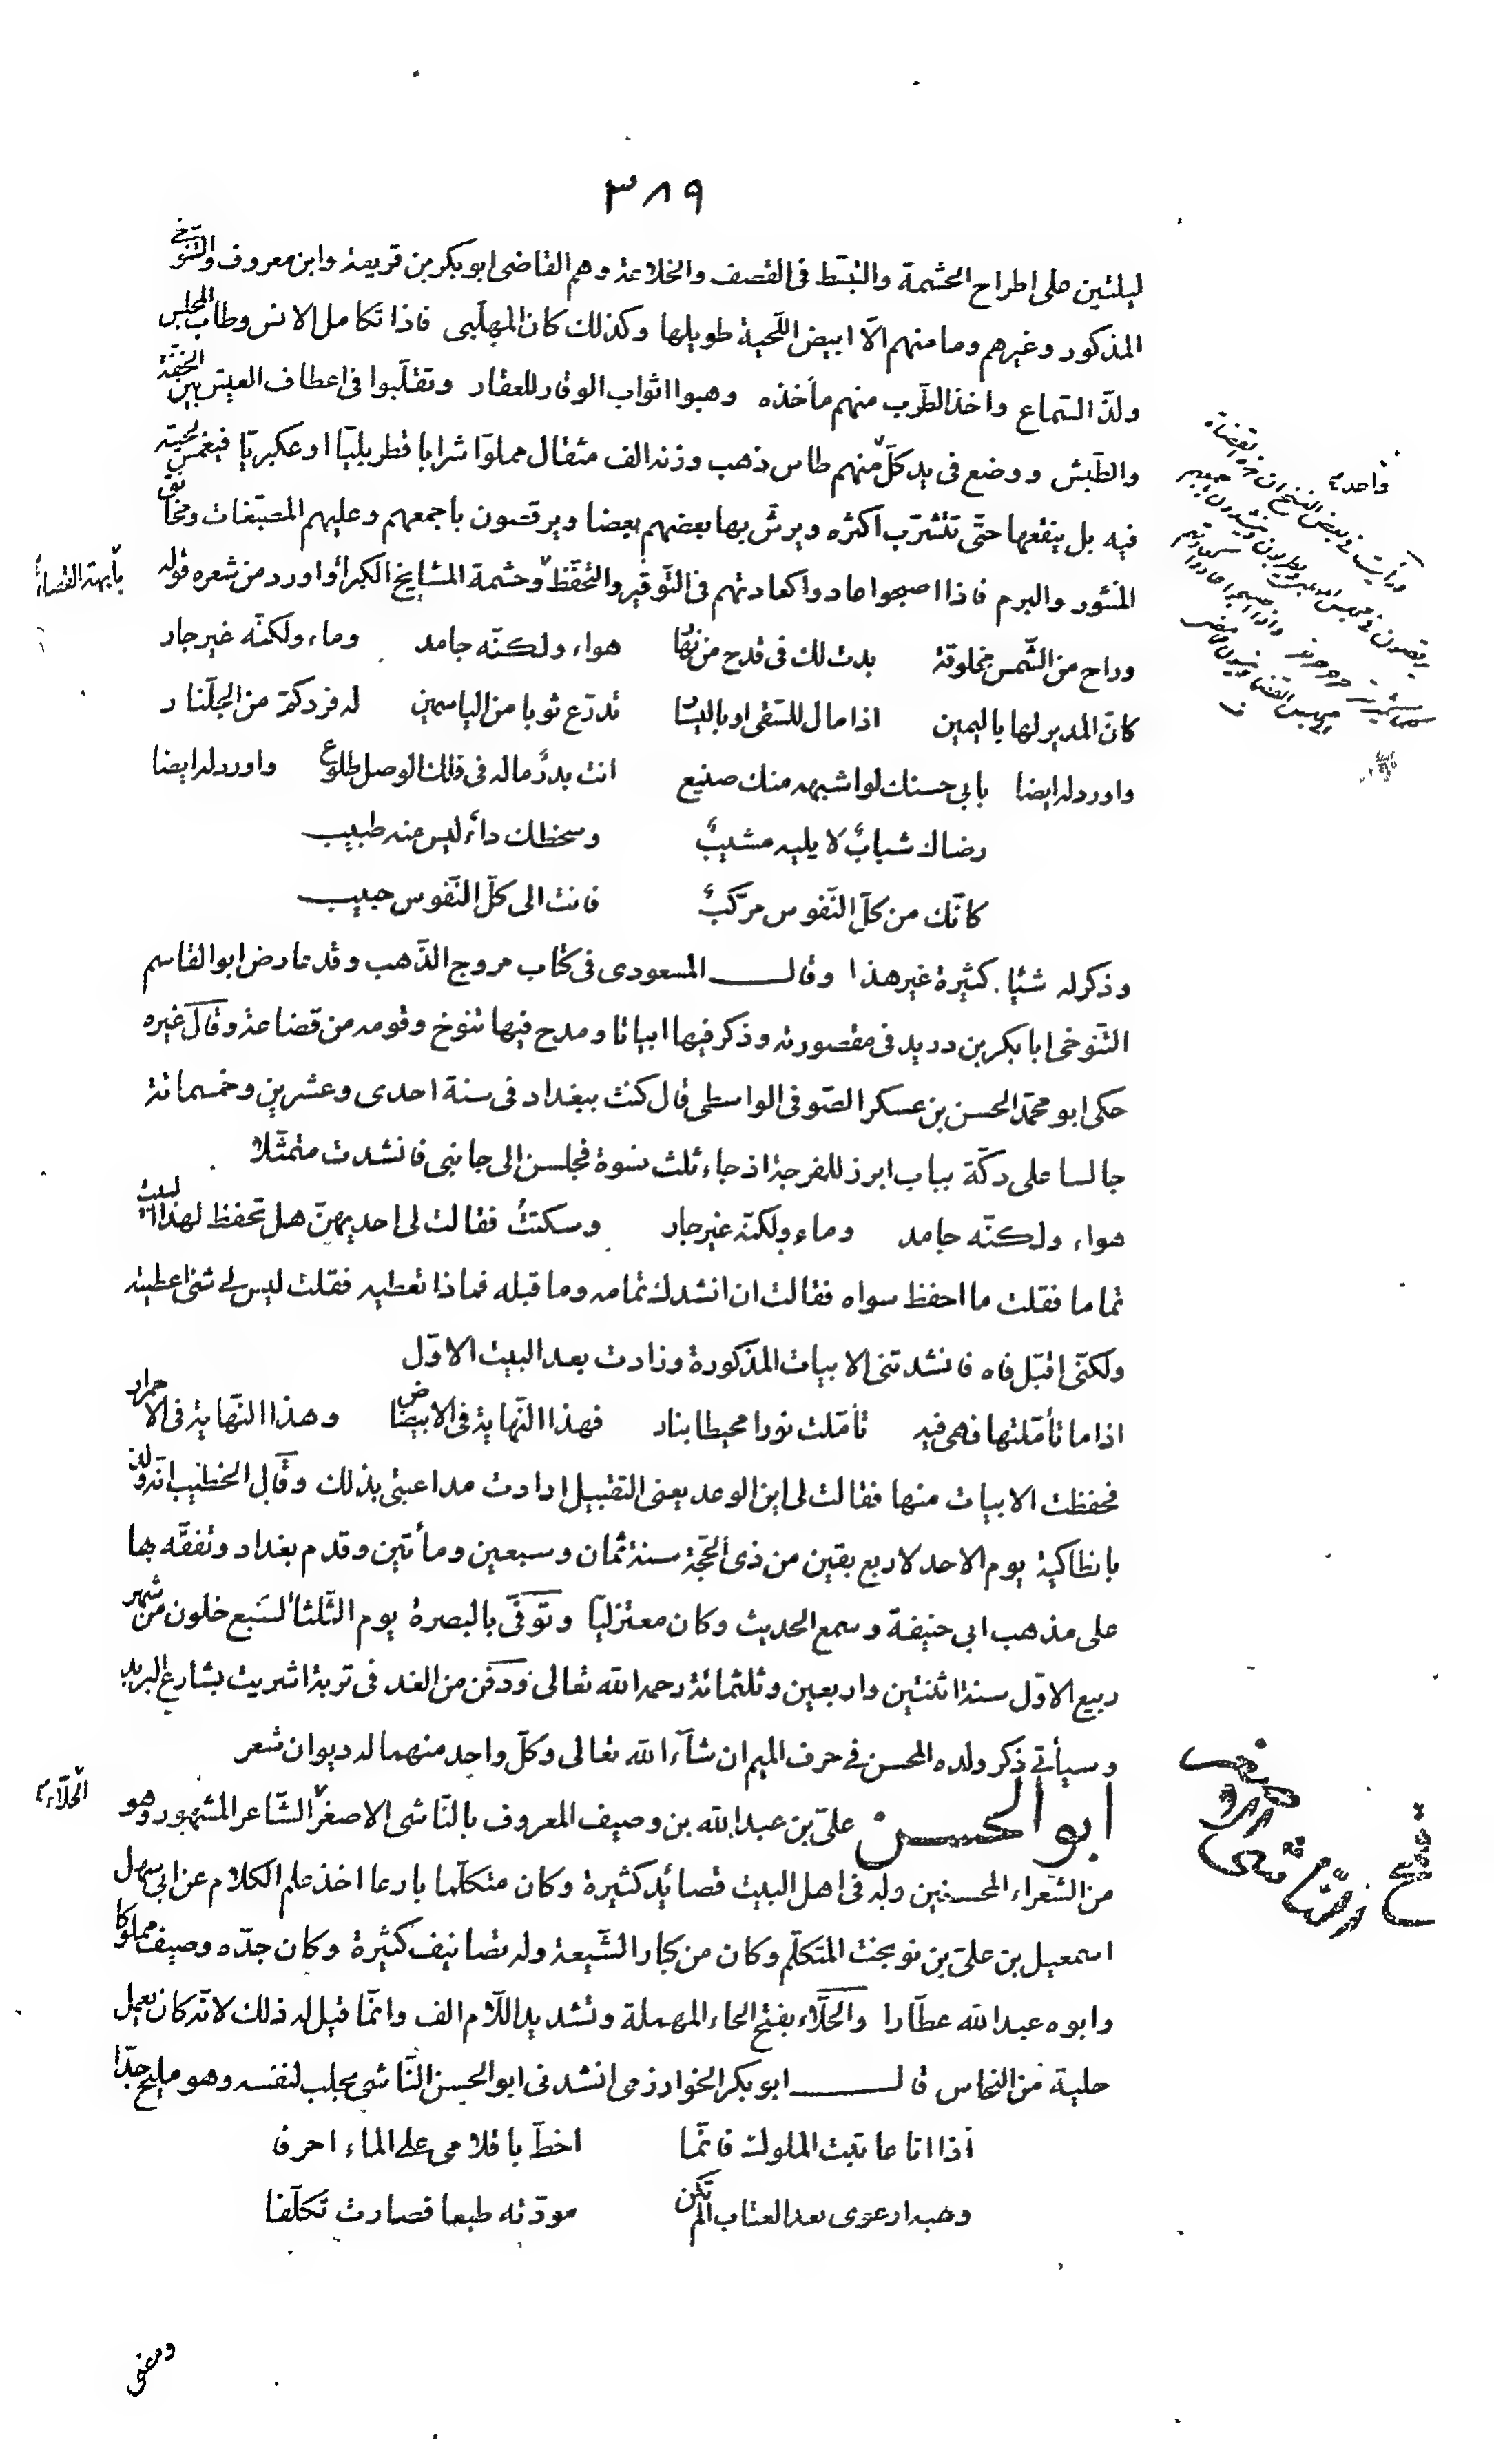 ٣٨٩
ليلتين على اطراح الحشمة والتبسّط فى القصف والخلاعة وهم القاضى ابو بكر بن قريعة وابن معروف والتنوخى
المذكور وغيرهم وما منهم الّا ابيض اللّحية طويلها وكذلك كان المهلّبى فاذا تكامل الانس وطاب المجلس
ولذّ السّماع واخذ الطّرب منهم مأخذه وهبوا اثواب الوقار للعقار وتقلّبوا فى اعطاف العيش بين الخفّة
والطّيش ووضع فى يد كلّ منهم طاس ذهب وزنه الف مثقال مملوّا شرابا قطربليّا او عكبريّا فيغمس لحيته
فيه بل ينقعها حتّى تتشرّب اكثره ويرشّ بها بعضهم بعضا ويرقصون باجمعهم وعليهم المصبّغات ومخانق
المنثور والبرم فاذا اصبحوا عادوا كعادتهم فى التّوقير والتّحفّظ وحشمة المشايخ الكبرآء واورد من شعره قوله
بأبهة القضاء
وراح من الشّمس مخلوقة بدت لك فى قدح من نهار هواء ولكنّه جامد وماء ولكنّه غير جار
كانّ المدير لها باليمين اذا مال للسّقى او باليسار تدرّع ثوبا من الياسمين له فرد كمّ من الجلّنار
واورد له ايضا بابى حسنك لو اشبهه منك صنيع انت بدرٌ ما له فى فلك الوصل طلوع واورد له ايضا
رضاك شبابٌ لا يليه مشيبٌ وسخطك داءٌ ليس منه طبيب
كانّك من كلّ النّفوس مركّبٌ فانت الى كلّ النّفوس حبيب
وذكر له شيئا كثيرة غير هذا وقال المسعودى فى كتاب مروج الذّهب وقد عارض ابو القاسم
التّنوخى ابا بكر بن دريد فى مقصورته وذكر فيها ابياتا ومدح فيها تنوخ وقومه من قضاعة وقال غيره
حكى ابو محمّد الحسن بن عسكر الصّوفى الواسطى قال كنت ببغداد فى سنة احدى وعشرين وخمسمائة
جالسا على دكّة بباب ابرز للفرجة اذ جاء ثلث نسوة فجلسن الى جانبى فانشدت متمثّلا
هواء ولكنّه جامد وماء ولكنّه غير جار وسكتُّ فقالت لى احديهنّ هل تحفظ لهذا البيت
تماما فقلت ما احفظ سواه فقالت ان انشدك تمامه وما قبله فماذا تعطيه فقلت ليس لى شئ اعطيته
ولكنّى اقبّل فاه فانشدتنى الابيات المذكورة وزادت بعد البيت الاوّل
اذا ما تأمّلتها فهى فيه تأمّلت نورا محيطا بنار فهذا النّهاية فى الابيضاض وهذا النّهاية فى الاحمرار
فحفظت الابيات منها فقالت لى اين الوعد يعنى التقبيل ارادت مداعبتى بذلك وقال الخطيب انّه ولد
بانطاكية يوم الاحد لاربع بقين من ذى الحجّة سنة ثمان وسبعين ومأتين وقدم بغداد وتفقّه بها
على مذهب ابى حنيفة وسمع الحديث وكان معتزليّا وتوفّى بالبصرة يوم الثّلثا لسبع خلون من شهر
ربيع الاوّل سنة اثنتين واربعين وثلثمائة رحمه الله تعالى ودفن من الغد فى تربة اشريت بشارع البريد
وسيأتى ذكر ولده المحسن فى حرف الميم ان شآء الله تعالى وكلّ واحد منهما له ديوان شعر
ابو الحسن علىّ بن عبد الله بن وصيف المعروف بالنّاشى الاصغر الشّاعر المشهور وهو
الحلّاء
من الشّعراء المحسنين وله فى اهل البيت قصائد كثيرة وكان متكلّما بارعا اخذ علم الكلام عن ابى سهل
اسمعيل بن علىّ بن نوبخت المتكلّم وكان من كبار الشّيعة وله تصانيف كثيرة وكان جدّه وصيف مملوكا
وابوه عبد الله عطّارا والحلّاء بفتح الحاء المهملة وتشديد اللّام الف وانّما قيل له ذلك لانّه كان يعمل
حلية من النحاس قال ابو بكر الخوارزمى انشدنى ابو الحسن النّاشى بحلب لنفسه وهو مليح جدّا
اذا انا عاتبت الملوك فانّما اخطّ باقلامى على الماء احرفا
وهبه ارعوى بعد العتاب الم تكن مودّته طبعا فصارت تكلّفا
ومعنى